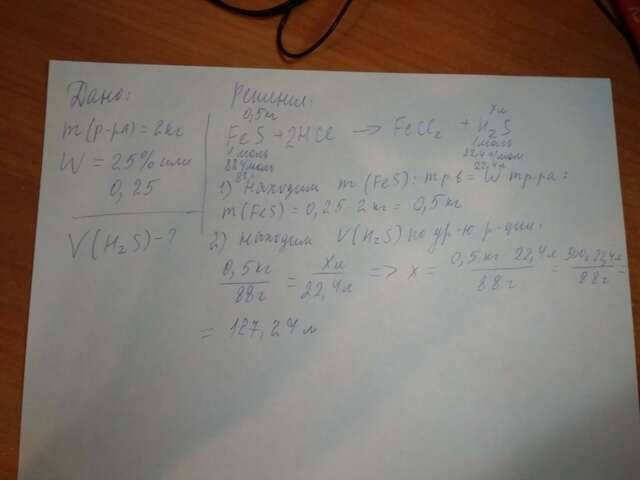 Дано:
m(р-ра) = 2кг
W = 25% или
0,25
V(H₂S) - ?
Решение:
0,5кг
Xл
FeS + 2HCl → FeCl₂ + H₂S
1 моль
1 моль
88 г/моль
22,4 л/моль
88г
22,4л
1) Находим m(FeS): mр.в = W mр-ра:
m(FeS) = 0,25·2кг = 0,5кг
2) Находим V(H₂S) по ур-ю р-ции:
0,5кг / 88г = Xл / 22,4л => x = 0,5кг 22,4л / 88г = 500·22,4л / 88г =
= 127,27л